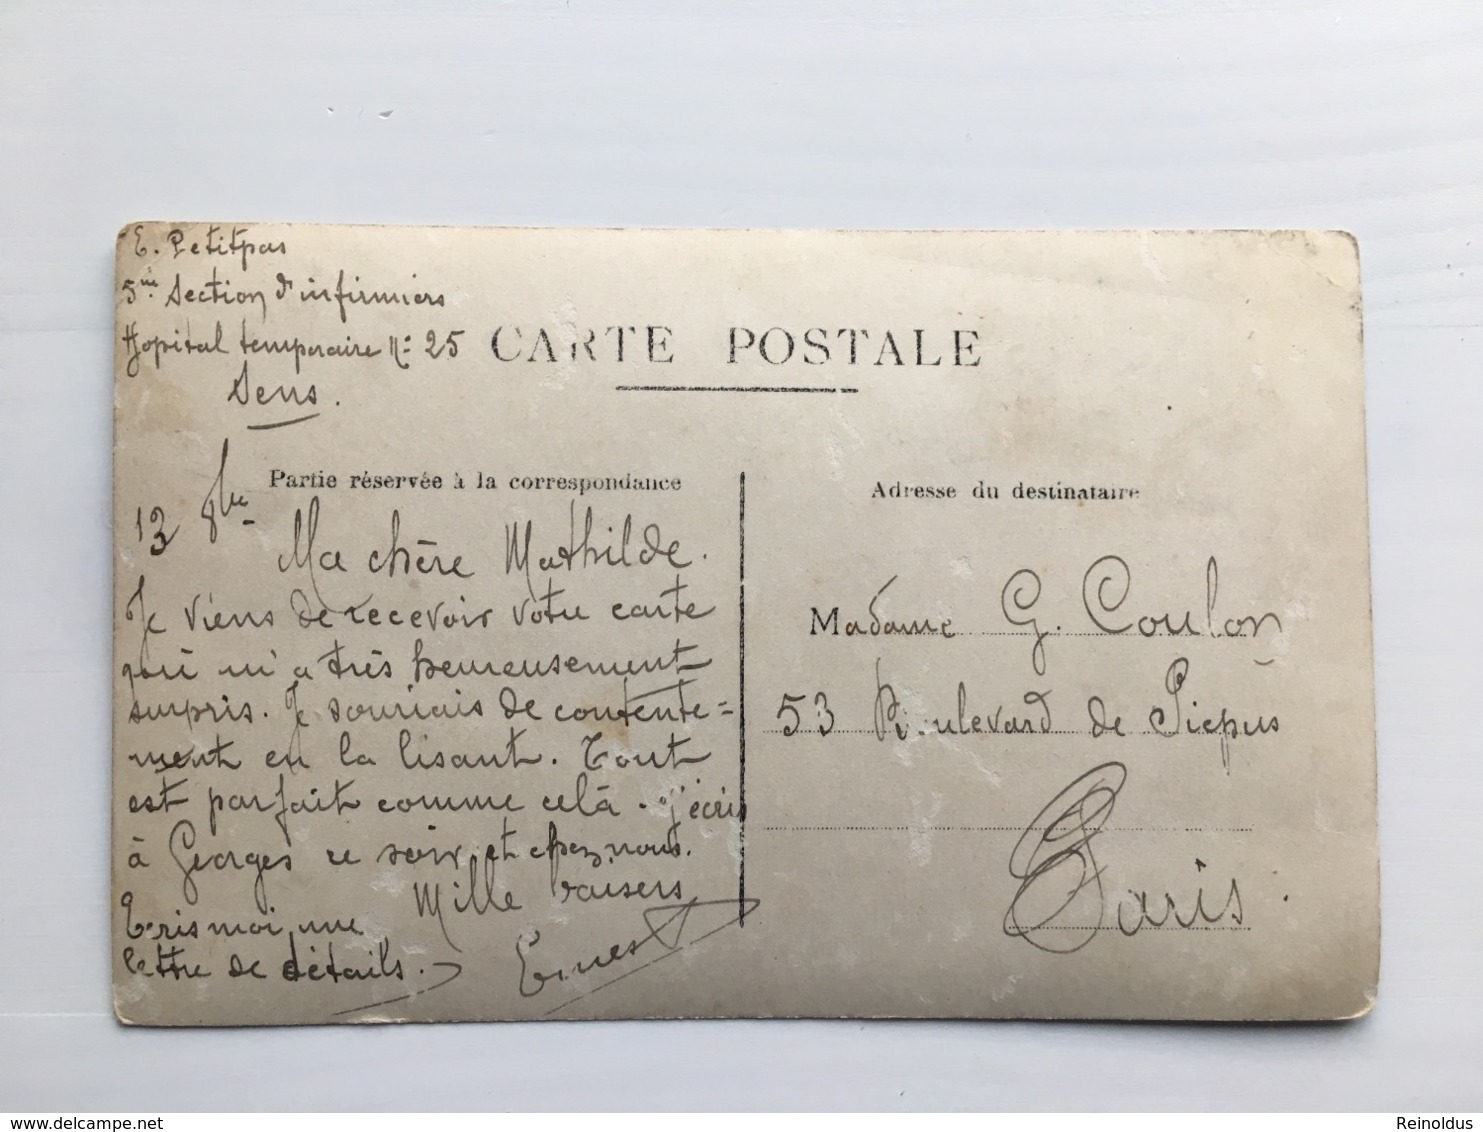 E. Petitpas
5me Section d'infirmiers
Hopital temporaire No 25
Sens.
CARTE POSTALE
Partie réservée à la correspondance
13 8bre
Ma chère Mathilde.
Je viens de recevoir votre carte
qui m'a très heureusement
surpris. Je souriais de contente=
ment en la lisant. Tout
est parfait comme cela. j'écris
à Georges ce soir et chez nous.
Mille baisers
Ernest
Ecris moi une
lettre de détails.
Adresse du destinataire
Madame G. Coulon
53 Boulevard de Picpus
Paris.
© delcampe.net
Reinoldus